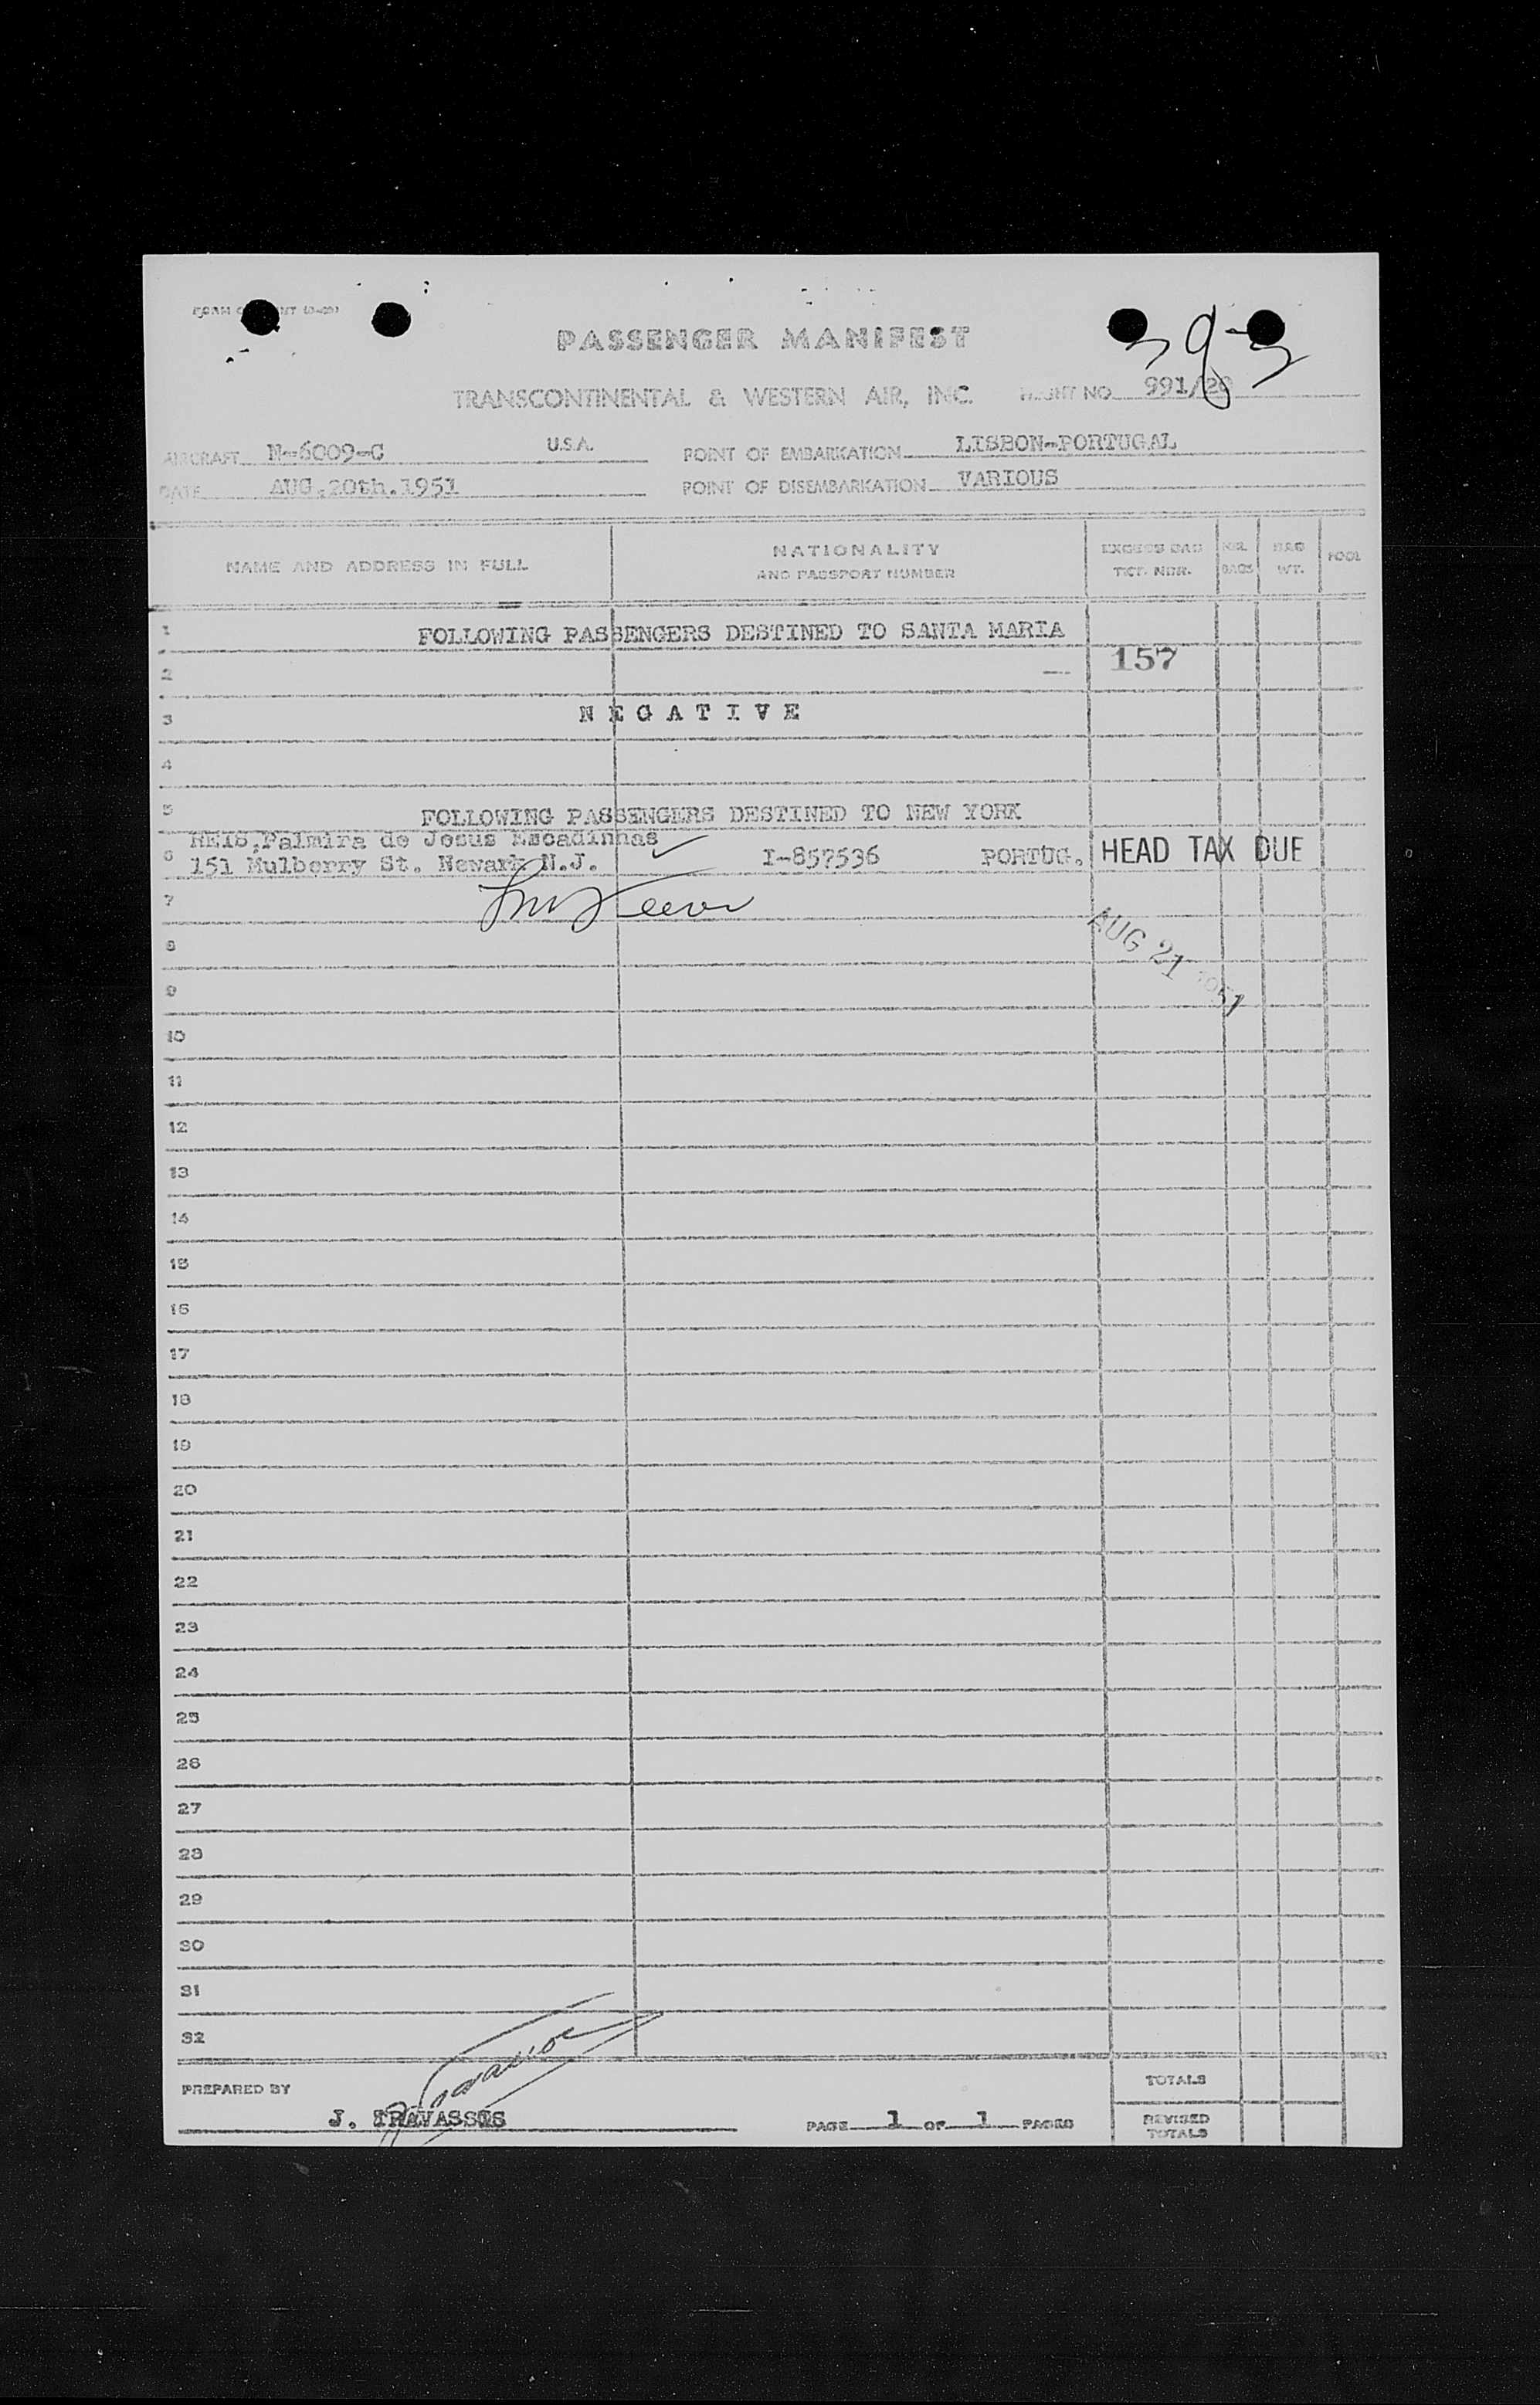 PASSENGER MANIFEST
TRANSCONTINENTAL & WESTERN AIR, INC. FLIGHT NO. 991/20
AIRCRAFT N-6009-C U.S.A. POINT OF EMBARKATION LISBON-PORTUGAL
DATE AUG.20th.1951 POINT OF DISEMBARKATION VARIOUS
NAME AND ADDRESS IN FULL
NATIONALITY
AND PASSPORT NUMBER
EXCESS BAG
TKT. NBR.
NBR.
BAGS
BAG
WT.
POOL
1 FOLLOWING PASSENGERS DESTINED TO SANTA MARIA
2 157
3 N E G A T I V E
4
5 FOLLOWING PASSENGERS DESTINED TO NEW YORK
REIS,Palmira de Jesus Escadinhas
6 151 Mulberry St. Newark N.J. I-857536 PORTUG. HEAD TAX DUE
7
8 AUG 21 1951
9
10
11
12
13
14
15
16
17
18
19
20
21
22
23
24
25
26
27
28
29
30
31
32
PREPARED BY TOTALS
J. TRAVASSOS PAGE 1 OF 1 PAGES REVISED
TOTALS